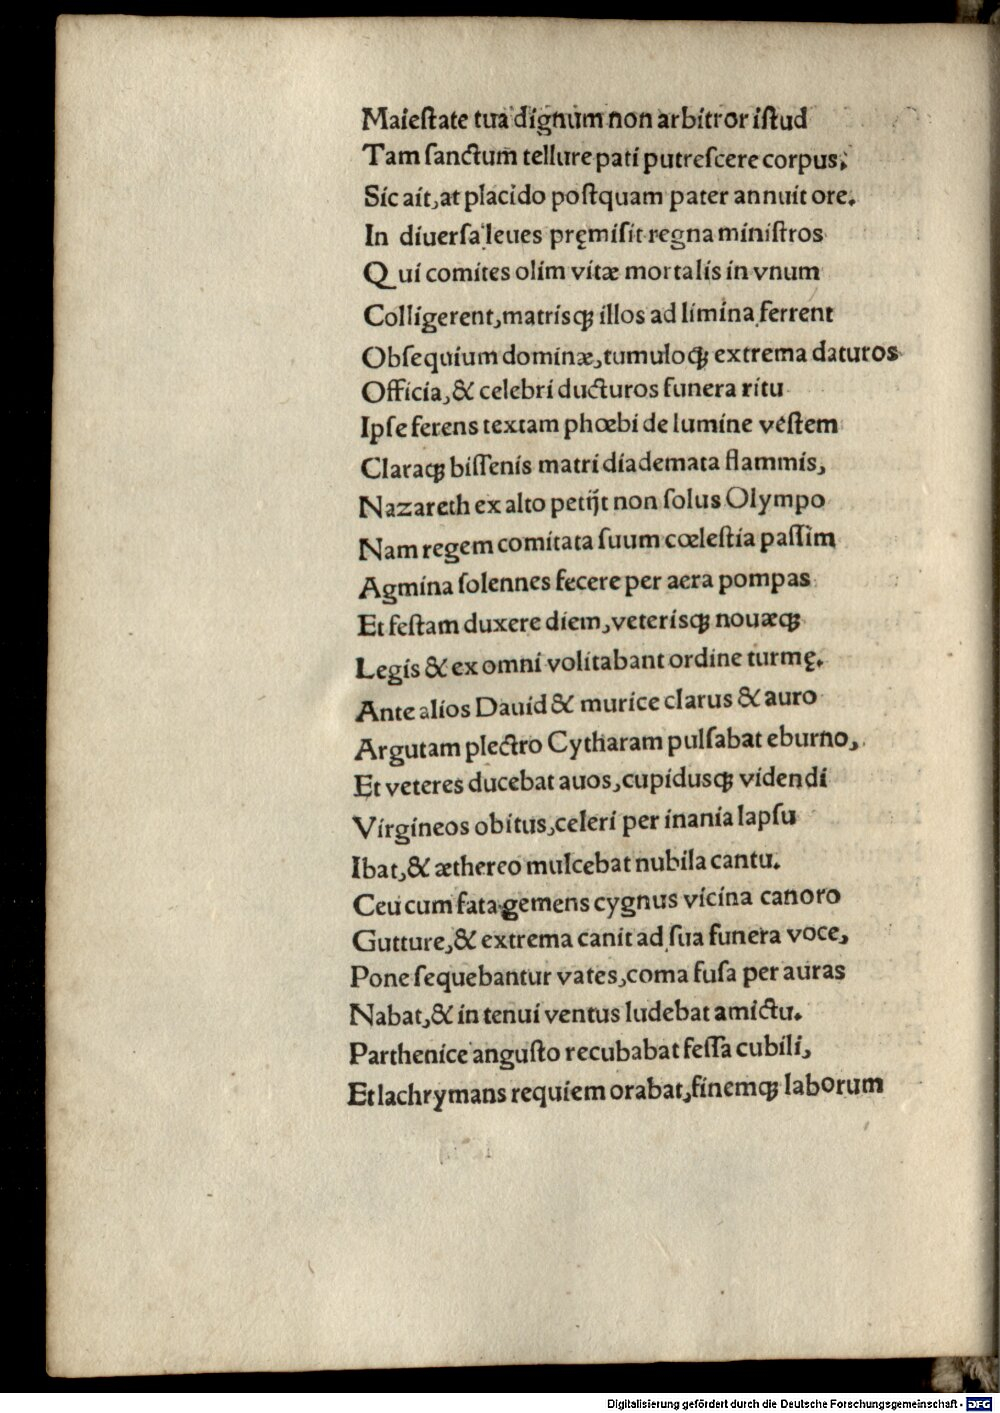 Maieſtate tua dignum non arbitror iſtud
Tam ſanctum tellure pati putreſcere corpus;
Sic ait, at placido poſtquam pater annuit ore.
In diuerſa leues pręmiſit regna miniſtros
Qui comites olim vitæ mortalis in vnum
Colligerent, matrisꝙ illos ad limina ferrent
Obſequium dominæ, tumuloꝙ extrema daturos
Officia, & celebri ducturos funera ritu
Ipſe ferens textam phœbi de lumine veſtem
Claraꝙ biſſenis matri diademata flammis,
Nazareth ex alto petijt non ſolus Olympo
Nam regem comitata ſuum cœleſtia paſſim
Agmina ſolennes fecere per aera pompas
Et feſtam duxere diem, veterisꝙ nouæꝙ
Legis & ex omni volitabant ordine turmę.
Ante alios Dauid & murice clarus & auro
Argutam plectro Cytharam pulſabat eburno,
Et veteres ducebat auos, cupidusꝙ videndi
Virgineos obitus, celeri per inania lapſu
Ibat, & æthereo mulcebat nubila cantu.
Ceu cum fata gemens cygnus vicina canoro
Gutture, & extrema canit ad ſua funera voce,
Pone ſequebantur vates, coma fuſa per auras
Nabat, & in tenui ventus ludebat amictu.
Parthenice anguſto recubabat feſſa cubili,
Et lachrymans requiem orabat, finemꝙ laborum
Digitalisierung gefördert durch die Deutsche Forschungsgemeinschaft - DFG